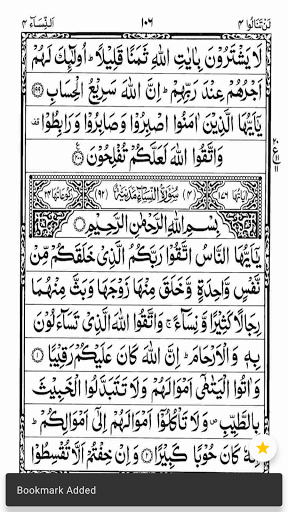 لن تنالوا ۴ ١٠٦ النسآء ۴
لَا يَشْتَرُوْنَ بِاٰيٰتِ اللّٰهِ ثَمَنًا قَلِيْلًا ؕ اُولٰٓئِكَ لَهُمْ
اَجْرُهُمْ عِنْدَ رَبِّهِمْ ؕ اِنَّ اللّٰهَ سَرِيْعُ الْحِسَابِ ﴿۱۹۹﴾
يٰۤاَيُّهَا الَّذِيْنَ اٰمَنُوا اصْبِرُوْا وَصَابِرُوْا وَرَابِطُوْا قف
وَاتَّقُوا اللّٰهَ لَعَلَّكُمْ تُفْلِحُوْنَ ﴿۲۰۰﴾
اٰيَاتُهَا ۱۷۶ (۴) سُوْرَةُ النِّسَآءِ مَدَنِيَّةٌ (۹۲) رُكُوْعَاتُهَا ۲۴
بِسْمِ اللّٰهِ الرَّحْمٰنِ الرَّحِيْمِ
يٰۤاَيُّهَا النَّاسُ اتَّقُوْا رَبَّكُمُ الَّذِيْ خَلَقَكُمْ مِّنْ
نَّفْسٍ وَّاحِدَةٍ وَّخَلَقَ مِنْهَا زَوْجَهَا وَبَثَّ مِنْهُمَا
رِجَالًا كَثِيْرًا وَّنِسَآءً ۚ وَاتَّقُوا اللّٰهَ الَّذِيْ تَسَآءَلُوْنَ
بِهٖ وَالْاَرْحَامَ ؕ اِنَّ اللّٰهَ كَانَ عَلَيْكُمْ رَقِيْبًا ﴿۱﴾
وَاٰتُوا الْيَتٰمٰۤى اَمْوَالَهُمْ وَلَا تَتَبَدَّلُوا الْخَبِيْثَ
بِالطَّيِّبِ ۪ وَلَا تَاْكُلُوْۤا اَمْوَالَهُمْ اِلٰۤى اَمْوَالِكُمْ ؕ
اِنَّهٗ كَانَ حُوْبًا كَبِيْرًا ﴿۲﴾ وَاِنْ خِفْتُمْ اَلَّا تُقْسِطُوْا
Bookmark Added